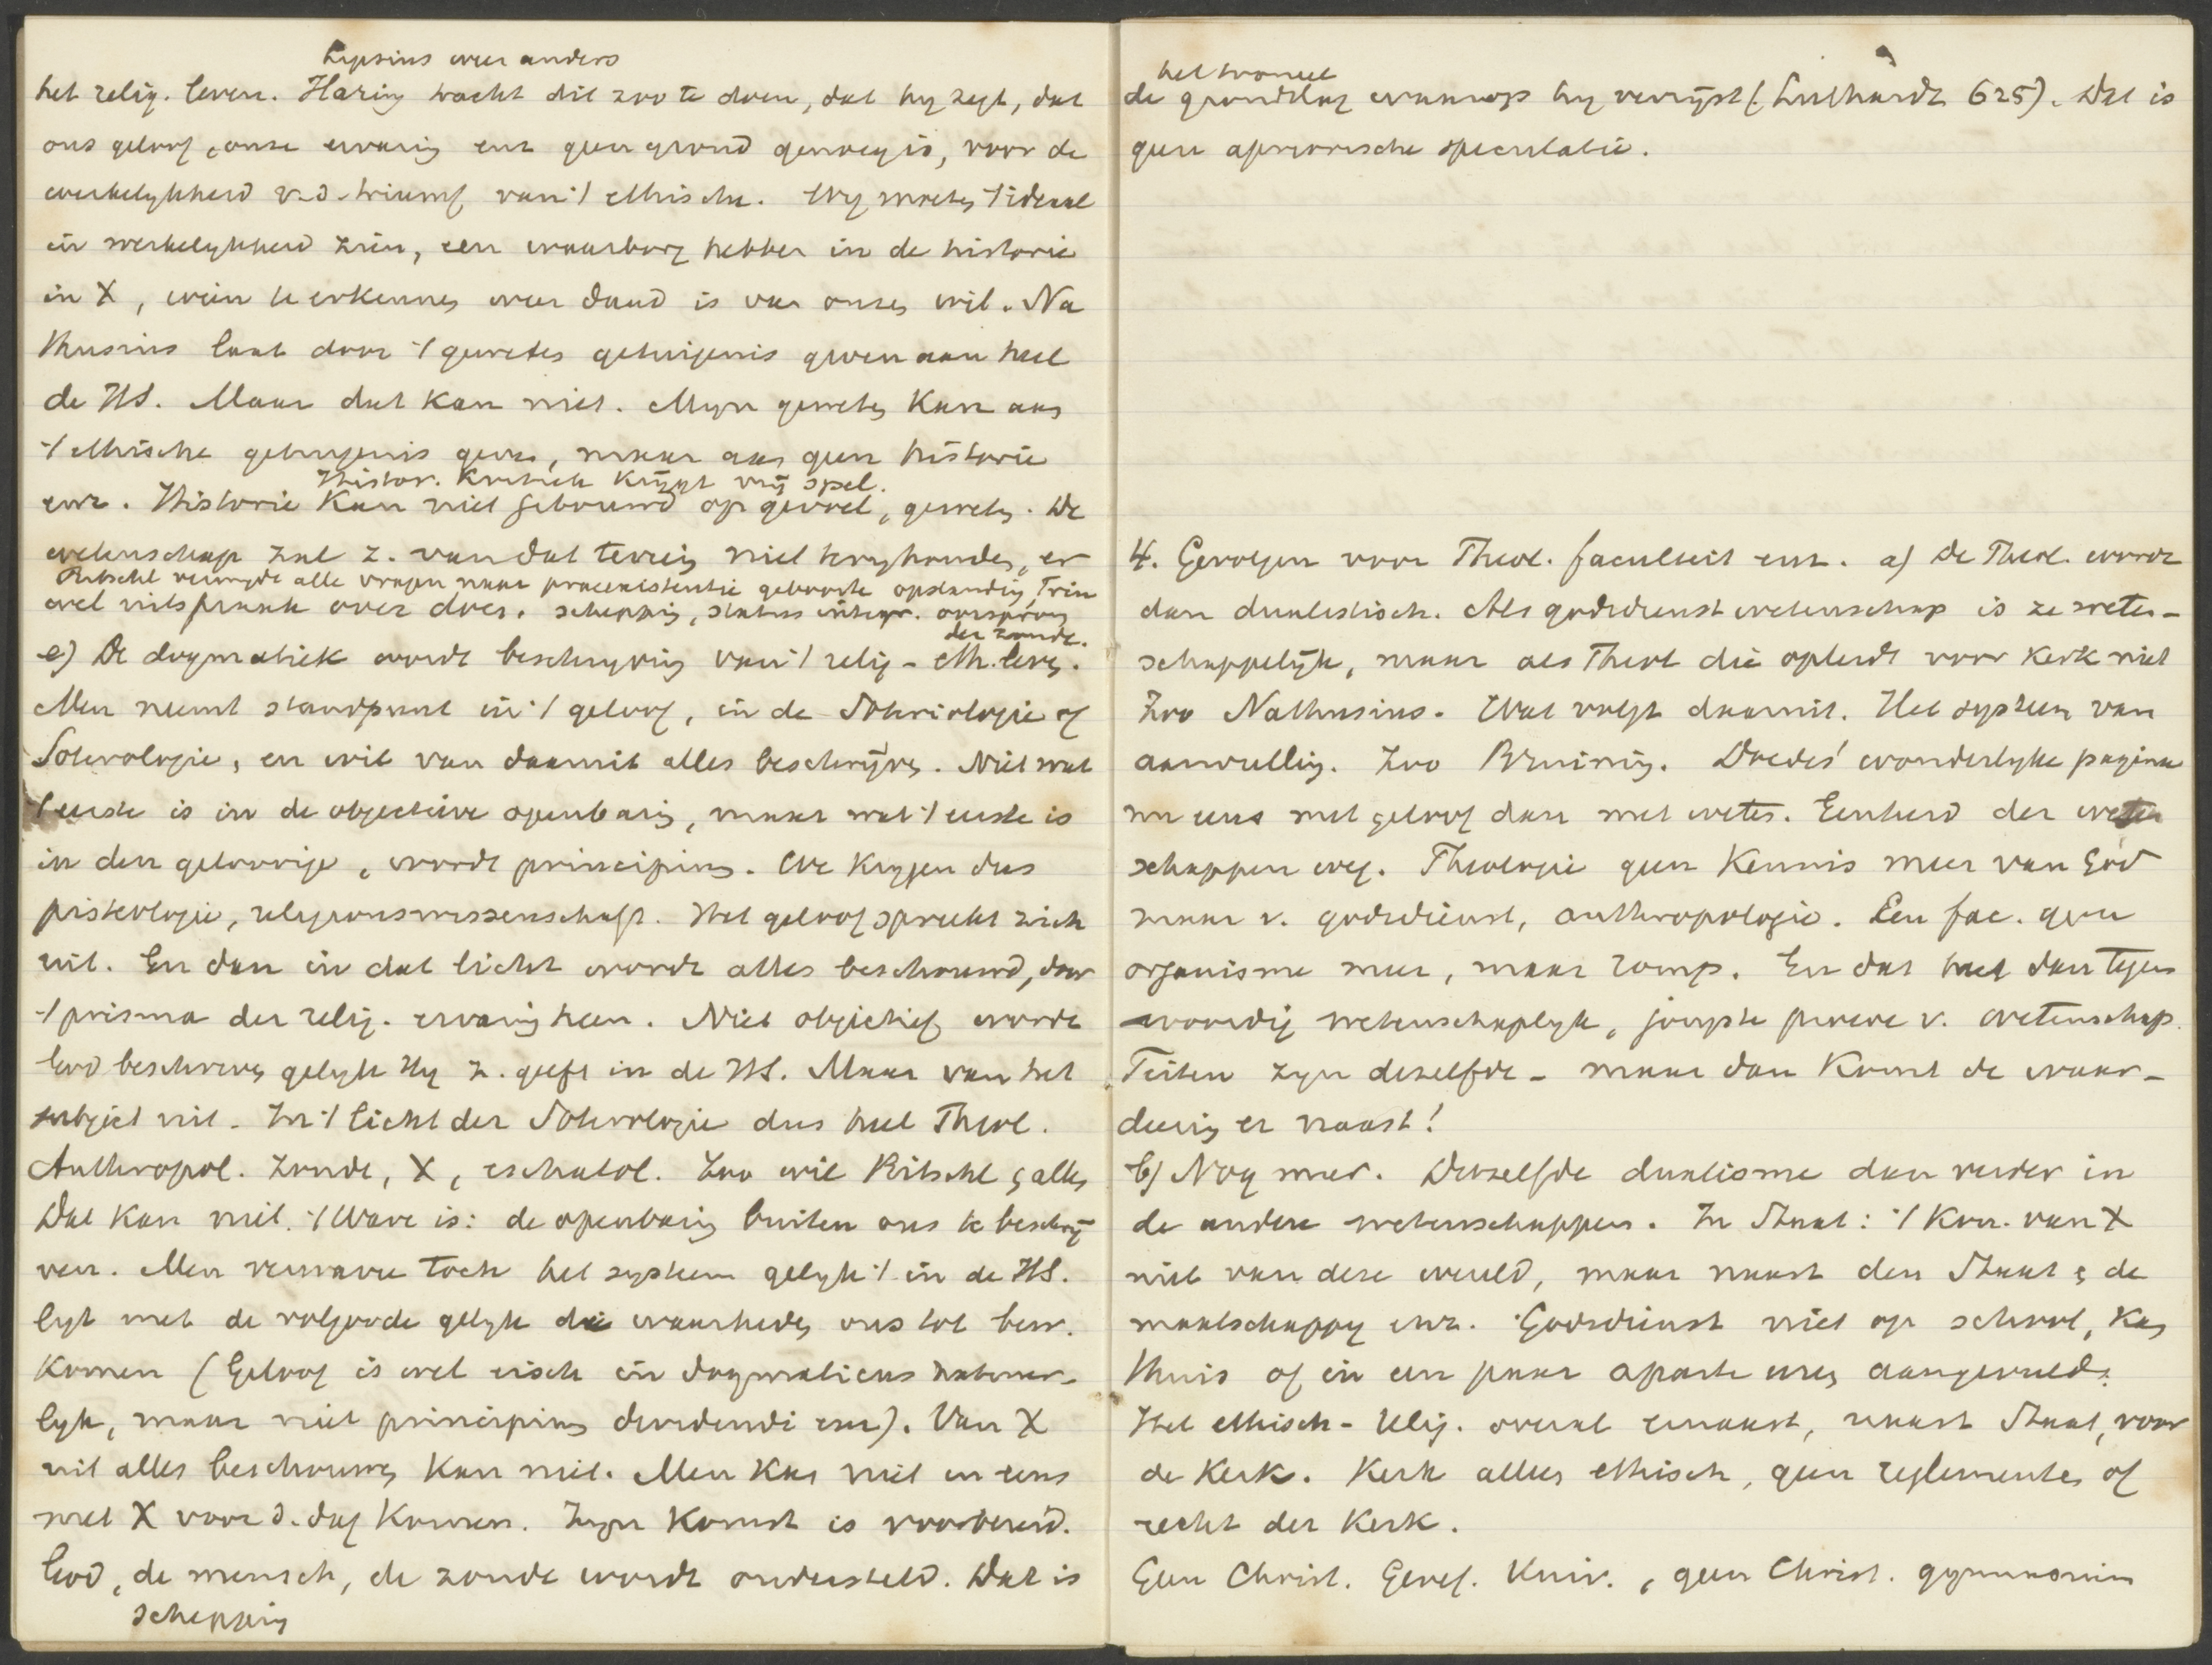 Lipsius weer anders
het relig. leven. Häring tracht dit zoo te doen, dat hy zegt, dat
ons geloof, onze ervaring enz geen grond genoeg is, voor de
werkelykheid v. d. triumf van 't ethische. Wy moeten 't ideaal
in werkelykheid zien, een waarborg hebben in de historie
in X, wien te erkennen weer daad is van onzen wil. Na
thusius laat door 't geweten getuigenis geven aan heel
de HS. Maar dat kan niet. Myn geweten kan aan
't ethische getuigenis geven, maar aan geen historie
Histor. Kritiek krijgt vrij spel.
enz. Historie kan niet gebouwd op gevoel, geweten. De
wetenschap zal z. van dat terrein niet terughouden, en
Ritschl vermydt alle vragen naar praeexistentie geboorte opstanding Trin
wel uitspraak over doen. schepping, status integr. oorsprong
der zonde.
e) De dogmatiek wordt beschryving van 't relig-eth. leven.
Men neemt standpunt in 't geloof, in de Soteriologie of
Soterologie, en wil van daaruit alles beschrijven. Niet wat
't eerste is in de objectieve openbaring, maar wat 't eerste is
in den geloovige, wordt principium. We krygen dus
pisteologie, religionswissenschaft. Het geloof spreekt zich
uit. En dan in dat licht wordt alles beschouwd, door
't prisma der relig. ervaring heen. Niet objectief wordt
God beschreven gelyk Hy z. geeft in de HS. Maar van het
subject uit. In 't licht der Soterologie dus heel Theol.
Anthropol. zonde, X, eschatol. Zoo wil Ritschl en alles
Dat kan niet. 't Ware is: de openbaring buiten ons te beschrij
ven. Men verwarre toch het systeem gelyk 't in de HS.
ligt met de volgorde gelyk die waarheden ons tot bew.
komen (Geloof is wel eisch in dogmaticus natuur-
lyk, maar niet principium dividendi enz). Van X
uit alles beschouwen kan niet. Men kan niet in eens
met X voor d. dag komen. Zyn komst is voorbereid.
God, de mensch, de zonde wordt ondersteld. Dat is
schepping
het tooneel
de grondslag waarop hy verrijst (Luthardt 625). Dat is
geen apriorische speculatie.
4. Gevolgen voor Theol. faculteit enz. a) De Theol. wordt
dan dualistisch. Als godsdienstwetenschap is ze weten-
schappelijk, maar als Theol die opleidt voor kerk niet
Zoo Nathusius. Wat volgt daaruit. Het systeem van
aanvulling. Zoo Bruining. Doedes' wonderlyke pagina
nu eens met geloof dan met weten. Eenheid der weten
schappen weg. Theologie geen kennis meer van God
maar v. godsdienst, anthropologie. Een fac. geen
organisme meer, maar romp. En dat heet dan tegen
woordig wetenschaplyk, jongste phase v. wetenschap.
Feiten zyn dezelfde - maar dan komt de waar-
deering er naast!
b) Nog meer. Datzelfde dualisme dan verder in
de andere wetenschappen. In Staat: 't Kon. van X
niet van deze wereld, maar naast den Staat en de
maatschappy enz. Godsdienst niet op school, kan
thuis of in een paar aparte uren aangevuld.
Het ethisch-relig. overal ernaast, naast Staat, voor
de Kerk. Kerk alles ethisch, geen reglementen of
recht der Kerk.
Geen Christ. Geref. Univ., geen Christ. gymnasium